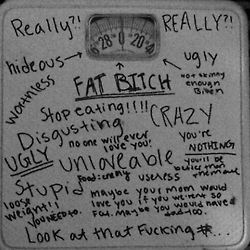 Really?! REALLY?!
28 0 20
hideous ugly
worthless FAT BITCH not skinny enough
Stop eating!!!!
Disgusting CRAZY
no one will ever love you!
you're NOTHING
UGLY unloveable
you'll be
Food: enemy useless
Stupid
loose weight!!
you need to.
maybe your mom would
love you if you weren't so
Fat. Maybe you would have a
Look at that Fucking #...